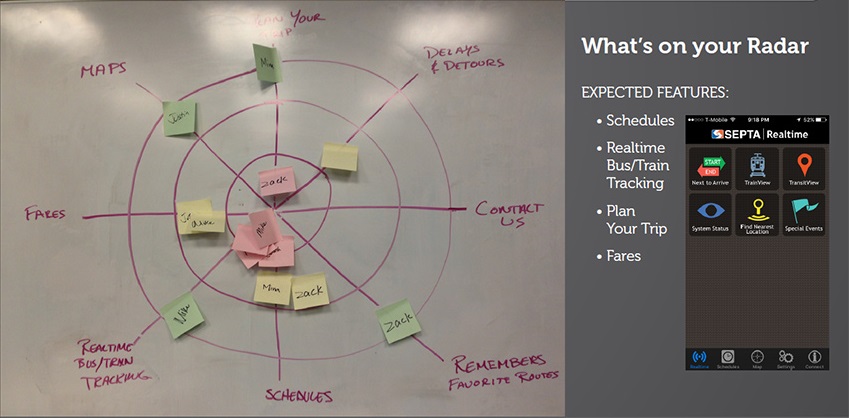 PLAN YOUR
TRIP
MAPS
DELAYS
& DETOURS
Mim
Josh
zack
FARES
CONTACT
US
Mike
Mim
zack
Mike
zack
REALTIME
BUS/TRAIN
TRACKING
SCHEDULES
REMEMBERS
FAVORITE ROUTES
What's on your Radar
EXPECTED FEATURES:
• Schedules
• Realtime
Bus/Train
Tracking
• Plan
Your Trip
• Fares
T-Mobile 9:18 PM 52%
SEPTA | Realtime
START
END
Next to Arrive TrainView TransitView
System Status Find Nearest Special Events
Location
Realtime Schedules Map Settings Connect